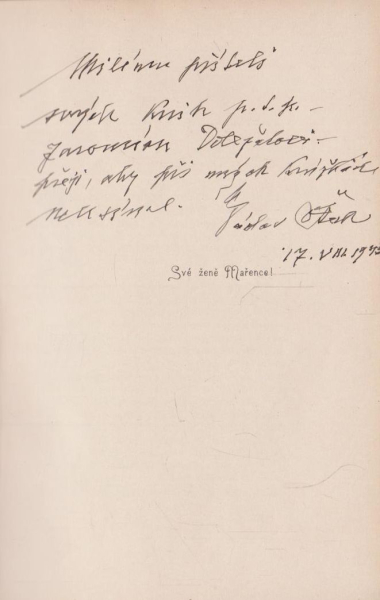 Milému příteli
svých knih p. t. p.
Jaromíru Doležalovi
přeji, aby při mých knížkách
neusínal.
Václav
17. VIII. 194
Své ženě Mařence!